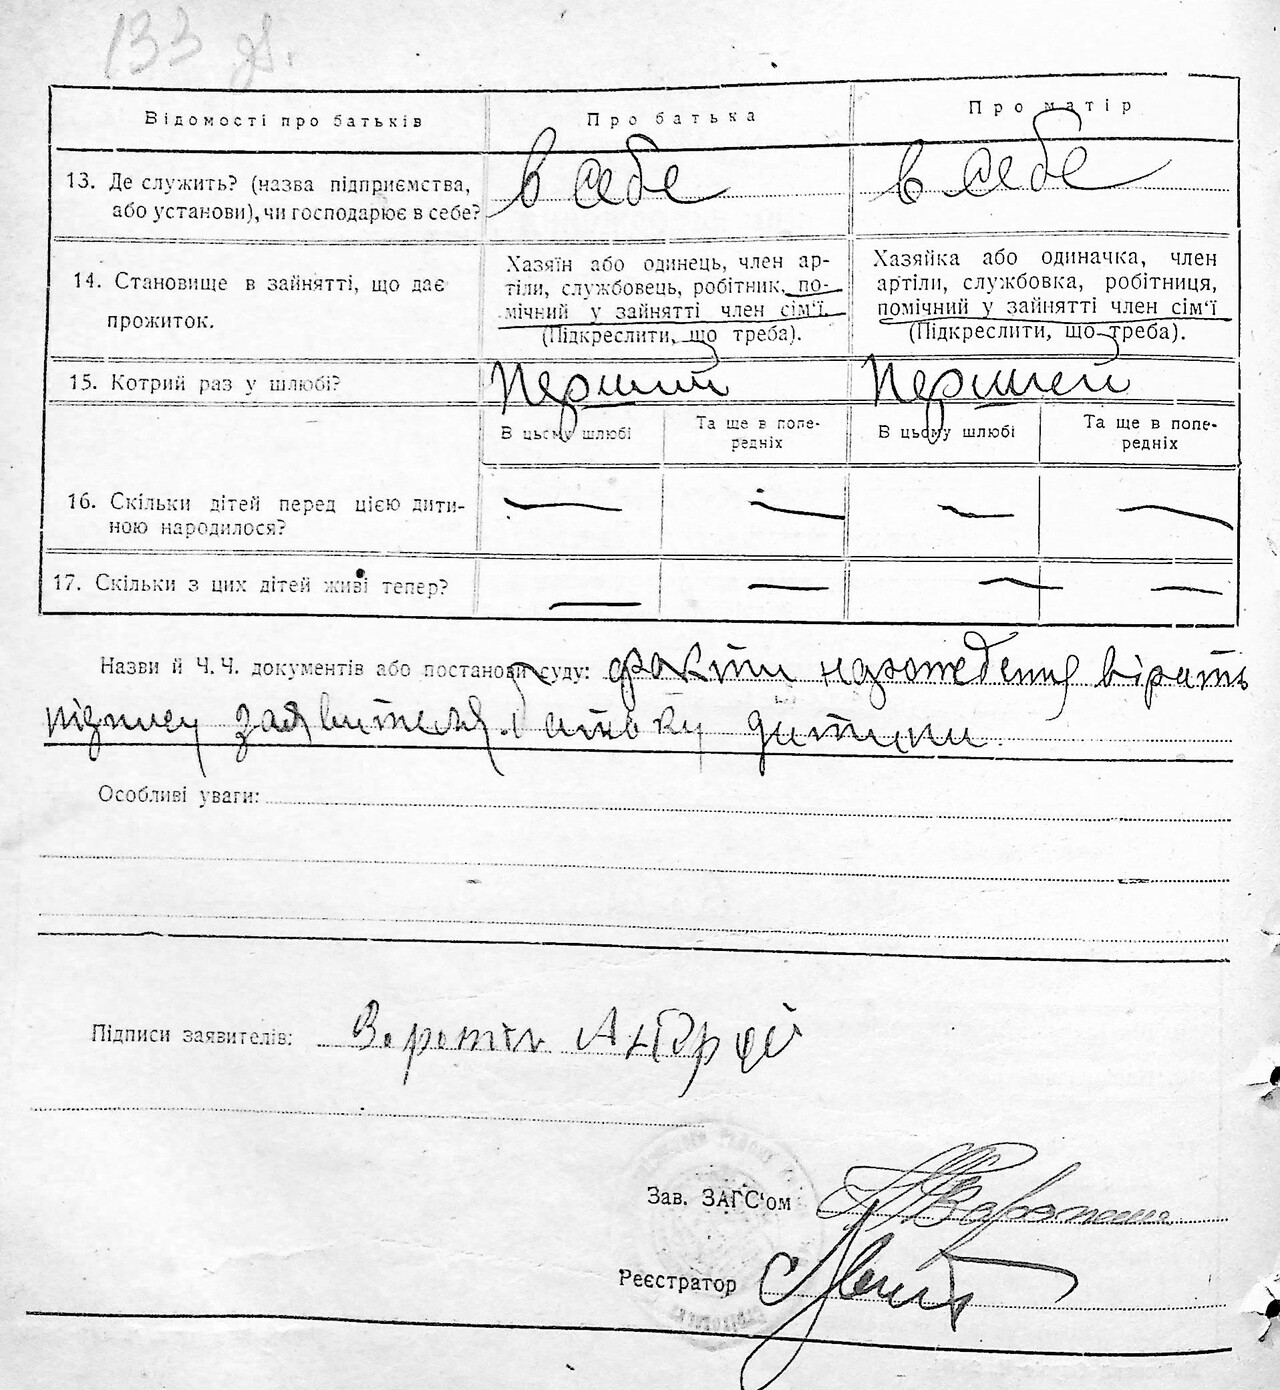 133 зв.
Відомості про батьків
Про батька
Про матір
13. Де служить? (назва підприємства,
або установи), чи господарює в себе?
в себе
в себе
14. Становище в зайнятті, що дає
прожиток.
Хазяїн або одинець, член ар-
тіли, службовець, робітник, по-
мічний у зайнятті член сім'ї
(Підкреслити, що треба).
Хазяйка або одиначка, член
артіли, службовка, робітниця,
помічний у зайнятті член сім'ї
(Підкреслити, що треба).
15. Котрий раз у шлюбі?
Перший
Перший
В цьому шлюбі
Та ще в попе-
редніх
В цьому шлюбі
Та ще в попе-
редніх
16. Скільки дітей перед цією дити-
ною народилося?
— — — —
17. Скільки з цих дітей живі тепер?
— — — —
Назви й Ч.Ч. документів або постанови суду: факти
підпису заявителя батьку дитини.
Особливі уваги:
Підписи заявителів:
Зав. ЗАГС'ом
Реєстратор